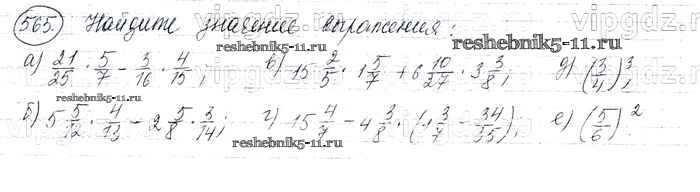 565. Найдите значение выражения:
а) 21/25 · 5/7 − 3/16 · 4/15; в) 15 2/5 · 1 5/7 + 6 10/27 · 3 3/8; д) (3/4)³;
б) 5 5/12 · 4/13 − 2 5/8 · 3/14; г) 15 4/7 − 4 3/8 · (1 3/7 − 34/35); е) (5/6)²
reshebnik5-11.ru
reshebnik5-11.ru
reshebnik5-11.ru
reshebnik5-11.ru
vipgdz
vipgdz